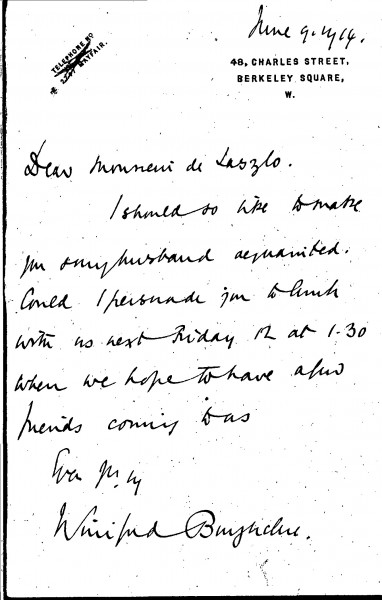 June 9. 1914.
TELEPHONE NO
MAYFAIR.
48, CHARLES STREET,
BERKELEY SQUARE,
W.
Dear Monsieur de Laszlo.
I should so like to make
you & my husband acquainted.
Could I persuade you to lunch
with us next Friday 12 at 1.30
when we hope to have a few
friends coming to us
Winifred Burghclere.